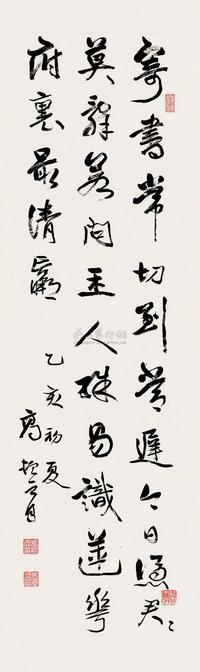 寄書常切到常遲今日憑君々
莫辭若問玉人殊易識蓮花
府裏最清羸
乙亥初夏
高振霄